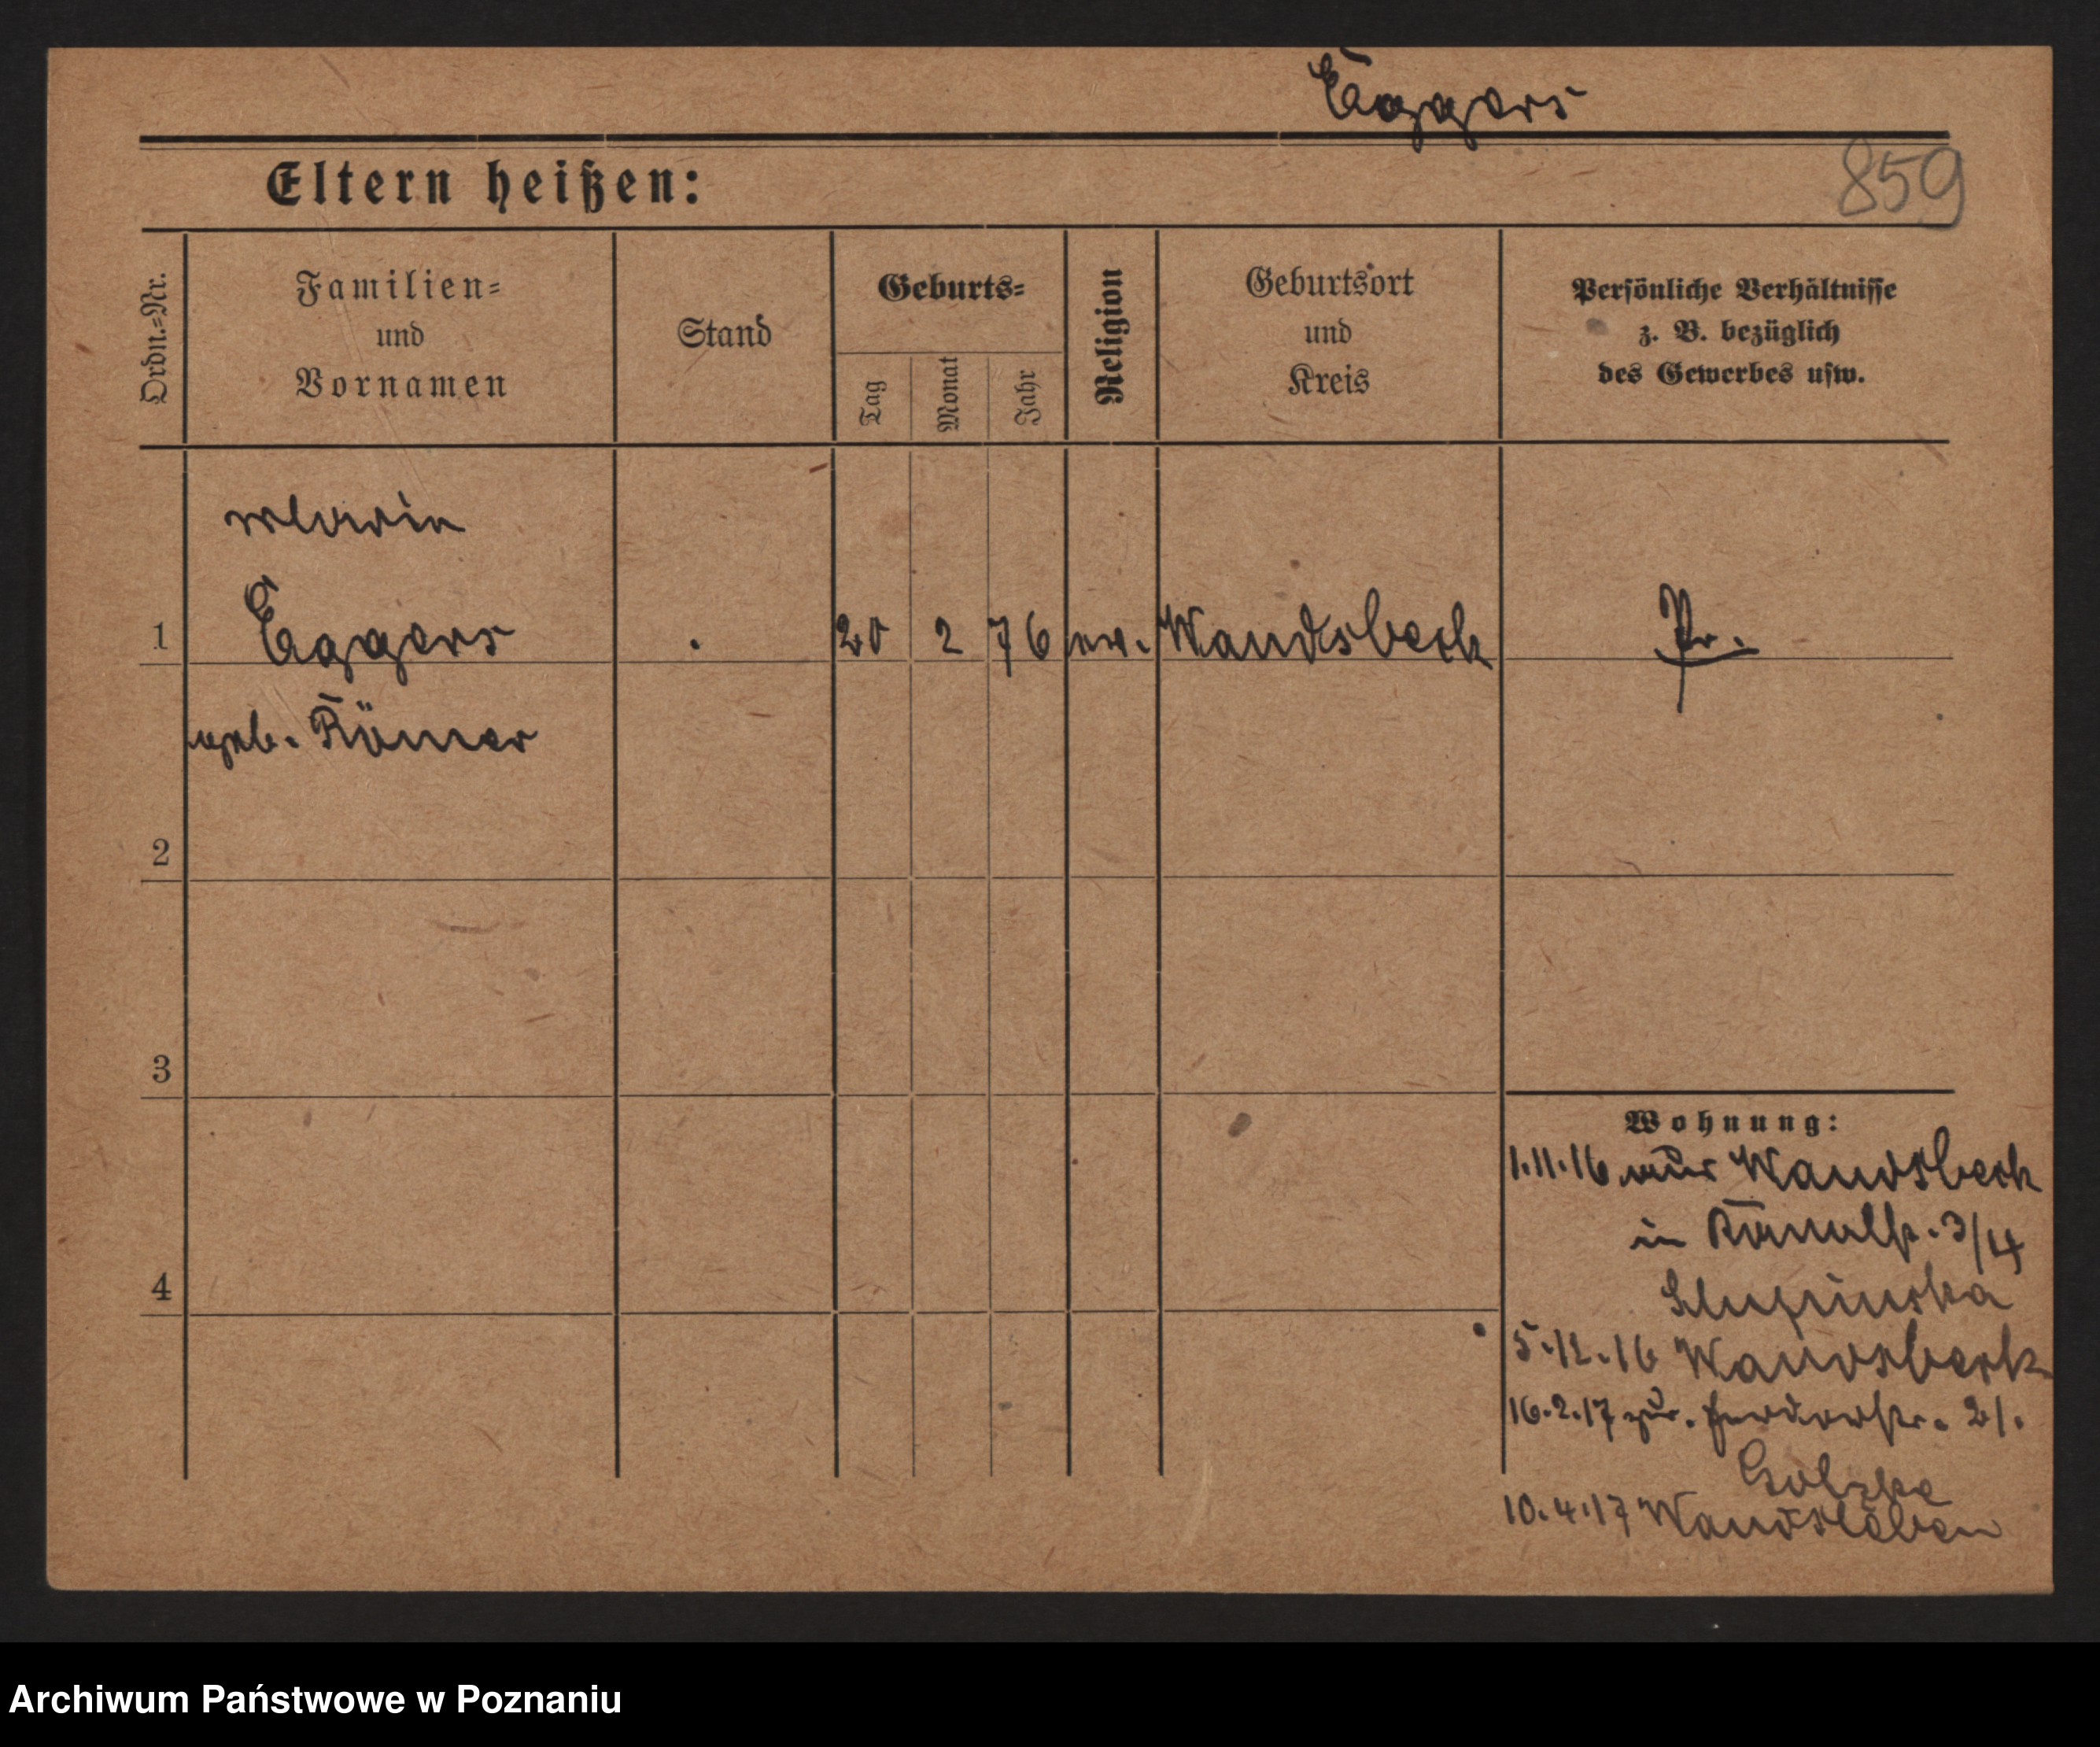 Eggers
859
Eltern heißen:
Ordn.=Nr.
Familien=
und
Vornamen
Stand
Geburts=
Tag
Monat
Jahr
Religion
Geburtsort
und
Kreis
Persönliche Verhältnisse
z. B. bezüglich
des Gewerbes usw.
Maria
1 Eggers . 20 2 76 ev. Wandsbeck Pr.
geb. Römer
2
3
4
Wohnung:
1.11.16 aus Wandsbeck
in 3/4
5.12.16 Wandsbeck
16.2.17 zur. 21.
10.4.17
Archiwum Państwowe w Poznaniu